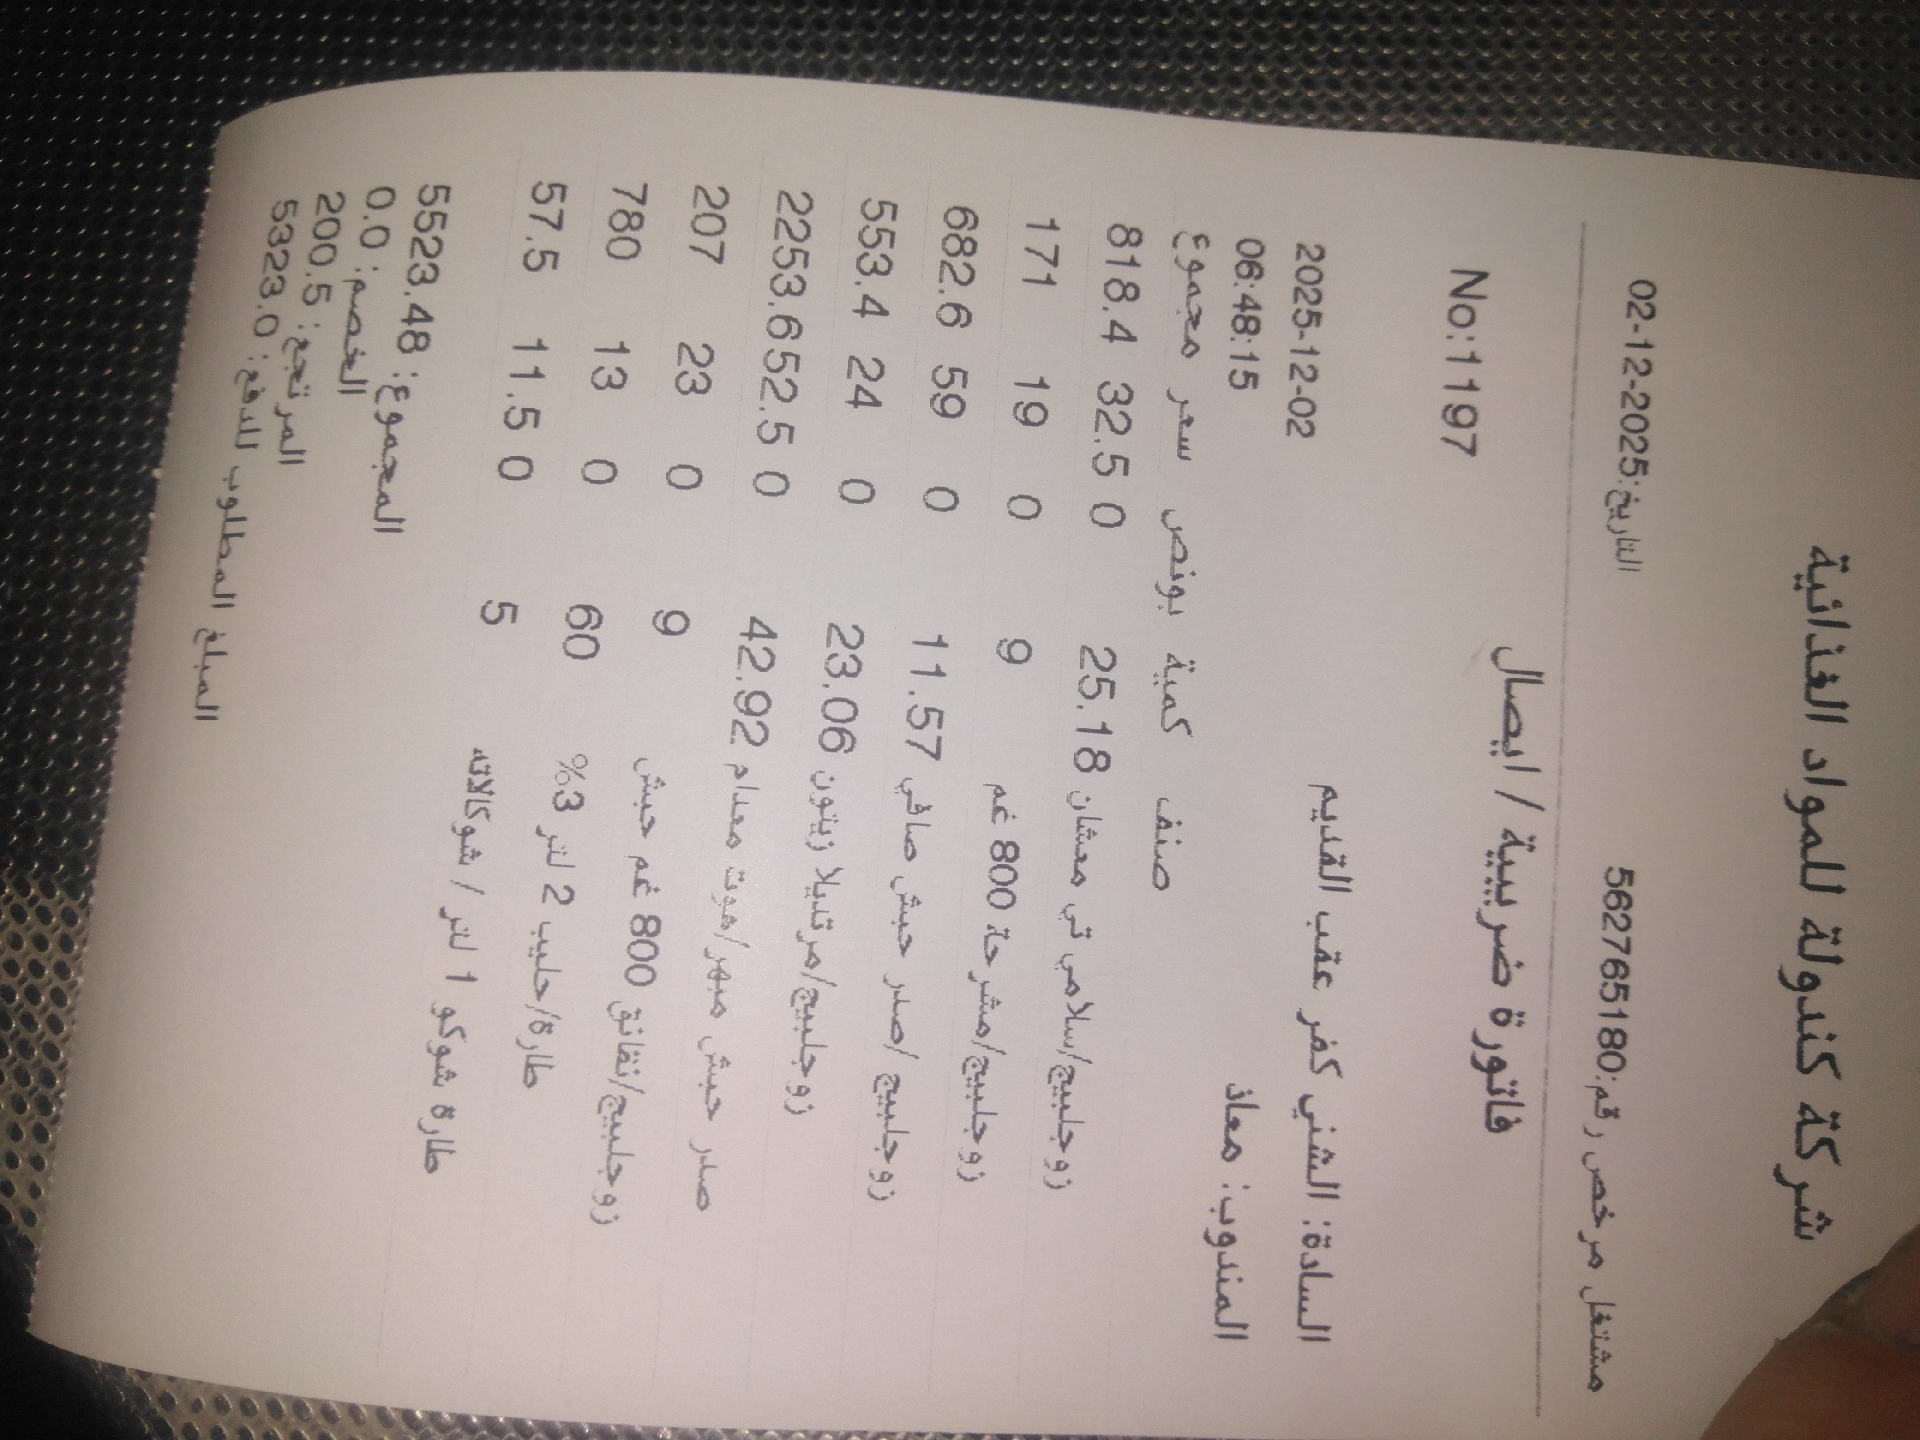 شركة كندولة للمواد الغذائية
مشتغل مرخص رقم:562765180 التاريخ:2025-12-02
فاتورة ضريبية / ايصال
No:1197
السادة: الشني كفر عقب القديم 2025-12-02
المندوب: معاذ 06:48:15
صنف كمية بونص سعر مجموع
زوجلبيج/سلامي تي معشان 25.18 0 32.5 818.4
زوجلبيج/مشرحة 800 غم 9 0 19 171
زوجلبيج /صدر حبش صافي 11.57 0 59 682.6
زوجلبيج/مرتديلا زيتون 23.06 0 24 553.4
صدر حبش مبهر/هوت معدام 42.92 0 52.5 2253.6
زوجلبيج/نقانق 800 غم حبش 9 0 23 207
طارة/حليب 2 لتر 3% 60 0 13 780
طارة شوكو 1 لتر / شوكالاته 5 0 11.5 57.5
المجموع: 5523.48
الخصم: 0.0
المرتجع: 200.5
المبلغ المطلوب للدفع: 5323.0